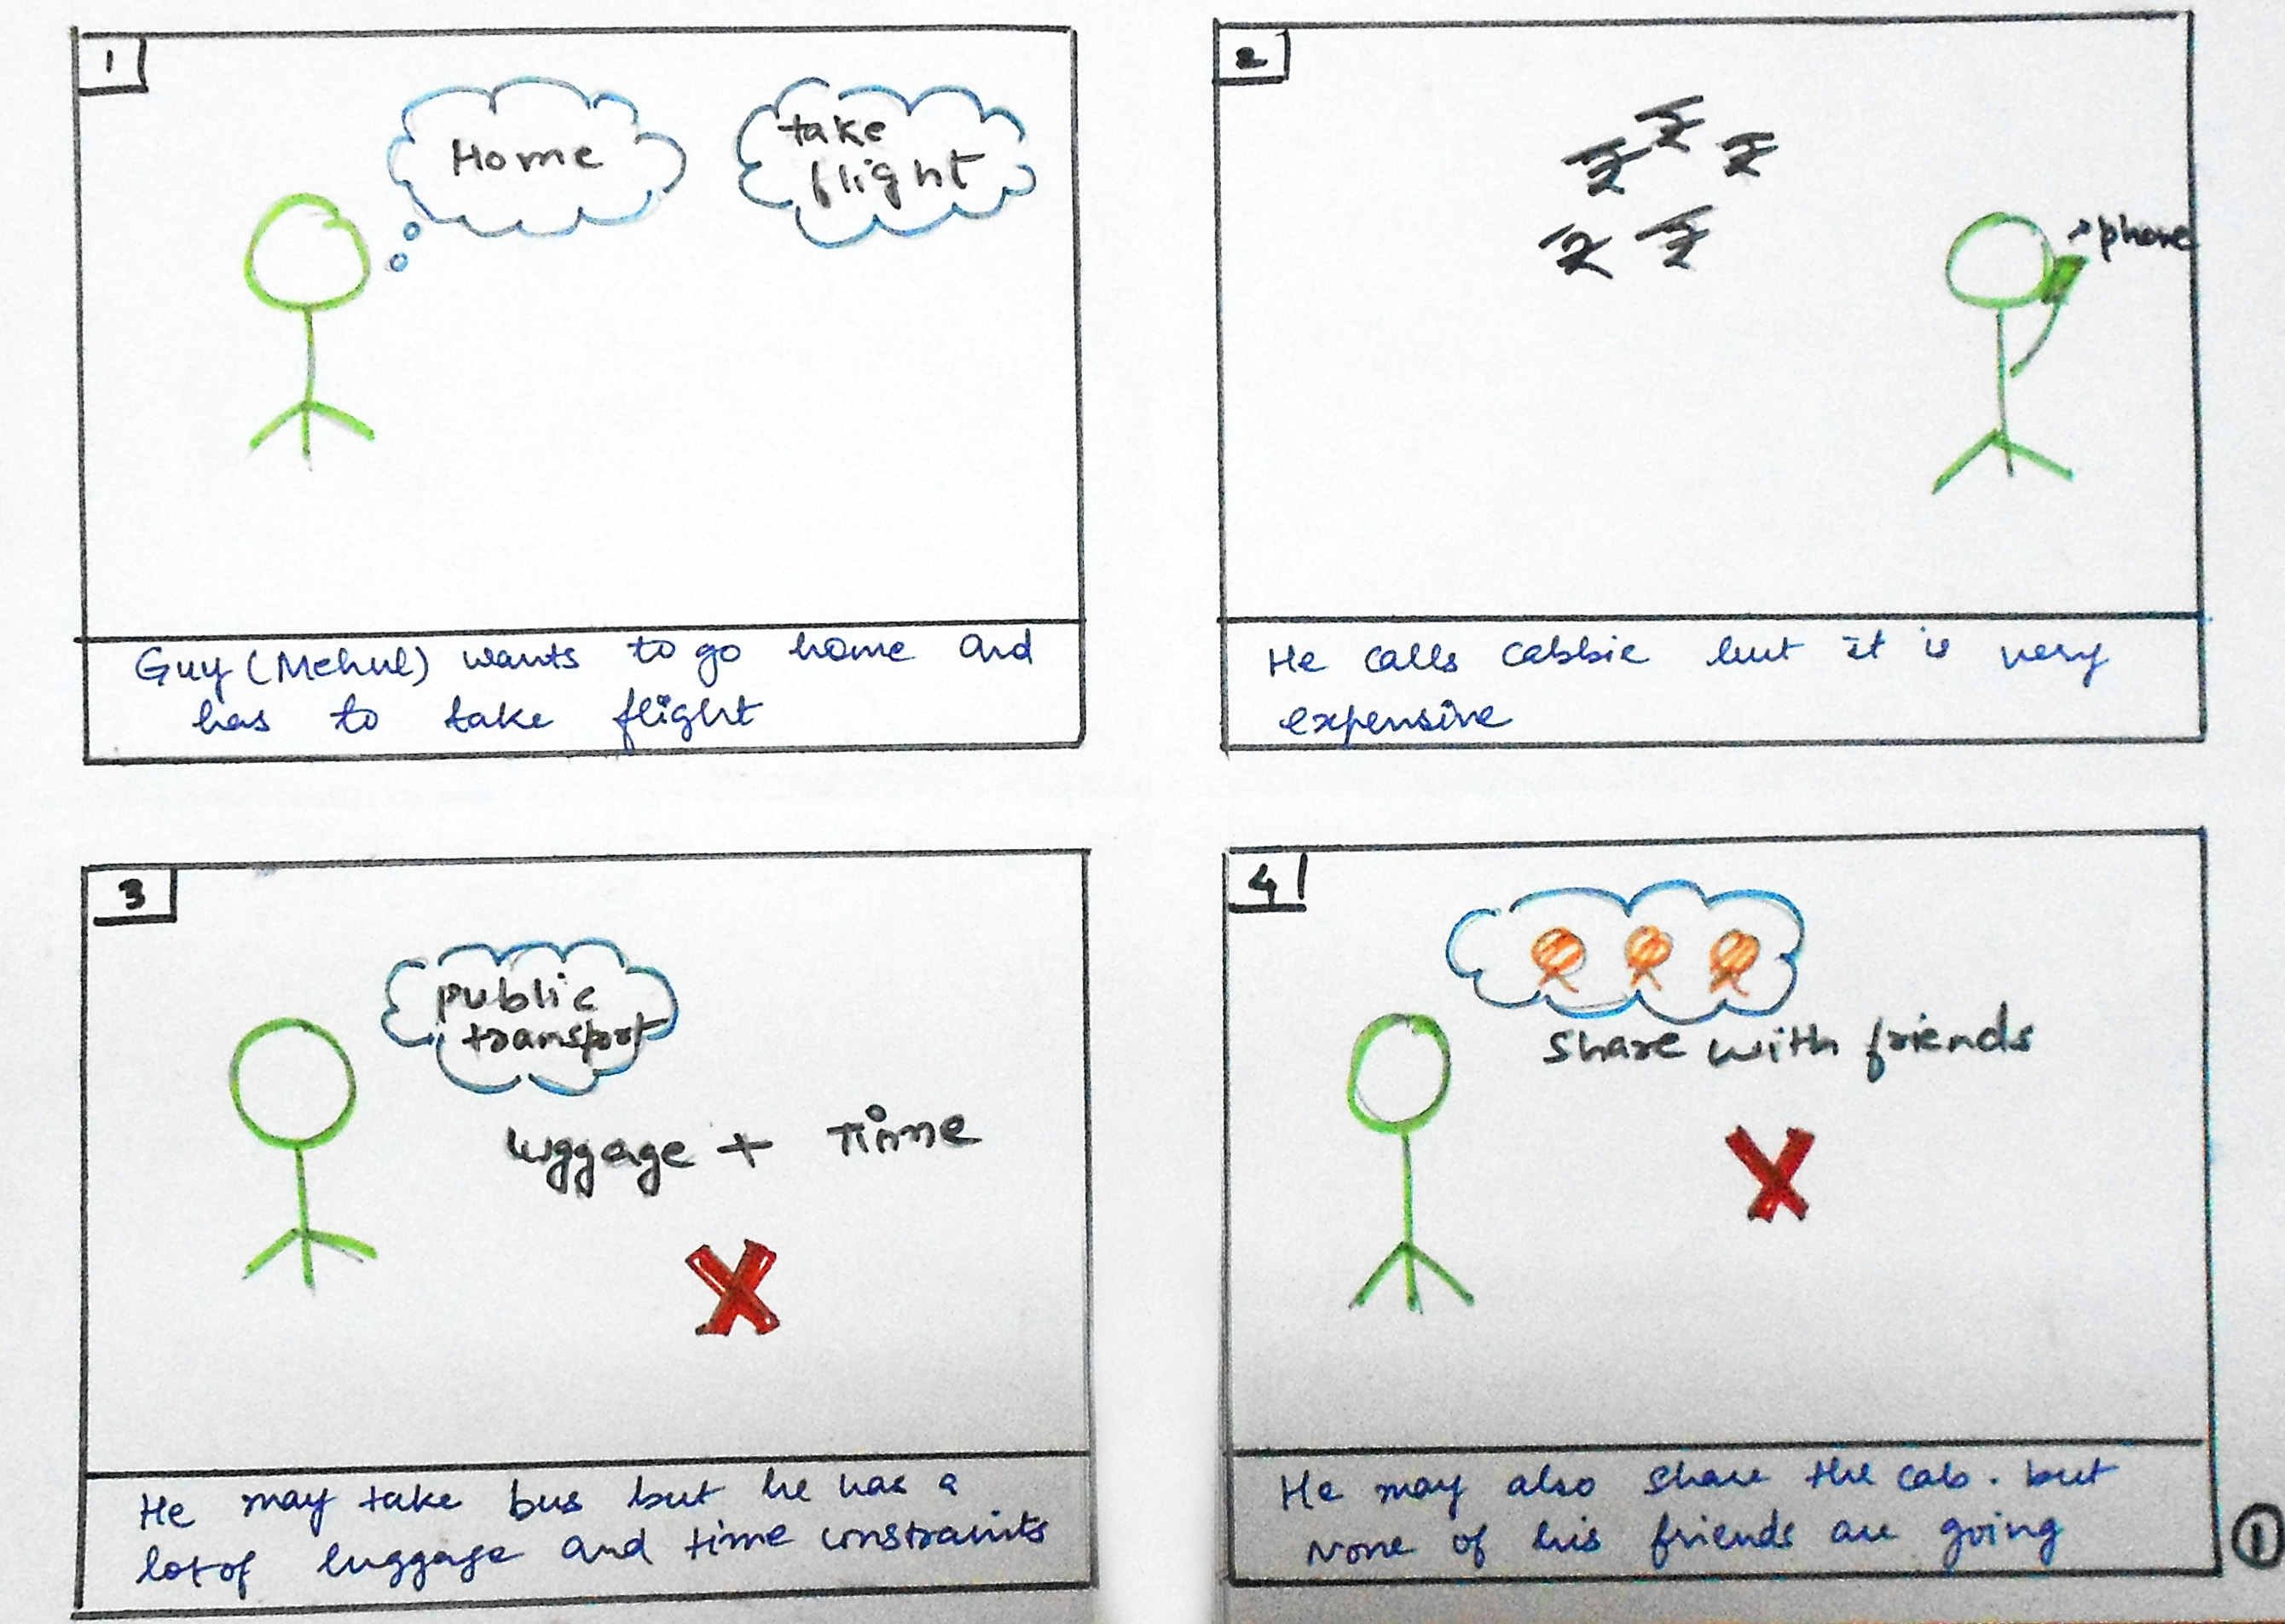 1
Home
take
flight
Guy (Mehul) wants to go home and
has to take flight
2
₹ ₹ ₹
₹ ₹
phone
He calls cabbie but it is very
expensive
3
public
transport
luggage + Time
He may take bus but he has a
lot of luggage and time constraints
4
share with friends
He may also share the cab. but
None of his friends are going
1